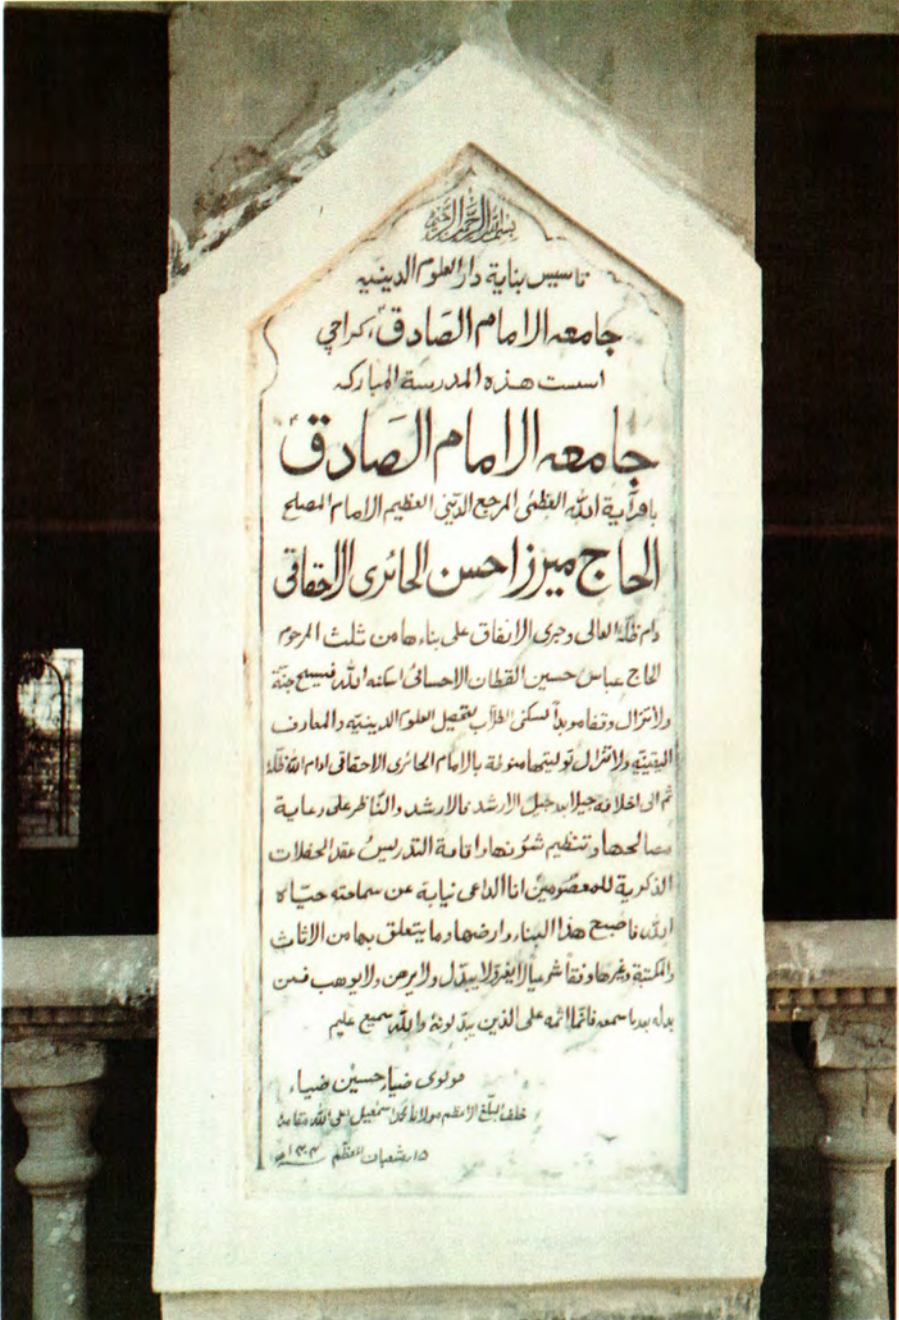 بسم الله الرحمن الرحيم
تاسيس بناية دار العلوم الدينيه
جامعه الامام الصادق كراچي
اسست هذه المدرسة المباركه
جامعه الامام الصادق
بامر آية الله العظمى المرجع الديني العظيم الامام المصلح
الحاج ميرزا حسن الحائرى الاحقاقى
دام ظله العالى وجرى الانفاق على بناءها من ثلث المرحوم
الحاج عباس حسين القطان الاحسائى اسكنه الله فسيح جنته
ولاتزال وقفا موبداً لسكنى الطلاب لتحصيل العلوم الدينيه والمعارف
اليقينيه ولاتزال توليتها منوطة بالامام الحائرى الاحقاقى ادام الله ظله
ثم الى اخلافه جيلا بعد جيل الارشد فالارشد والناظر على رعاية
مصالحها وتنظيم شئونها واقامة التدريس عقد الحفلات
الذكرية للمعصومين انا الداعى نيابة عن سماحته حياه
الله فاصبح هذا البناء وارضها وما يتعلق بها من الاثاث
والمكتبة وغيرها وقفاً شرعياً لايغير ولايبدل ولايرهن ولايوهب فمن
بدله بعد ما سمعه فانما اثمه على الذين يبدلونه والله سميع عليم
مولوى ضياء حسين ضياء
خلف المبلغ الاعظم مولانا محمد اسمعيل اعلى الله مقامه
١٥ شعبان المعظم